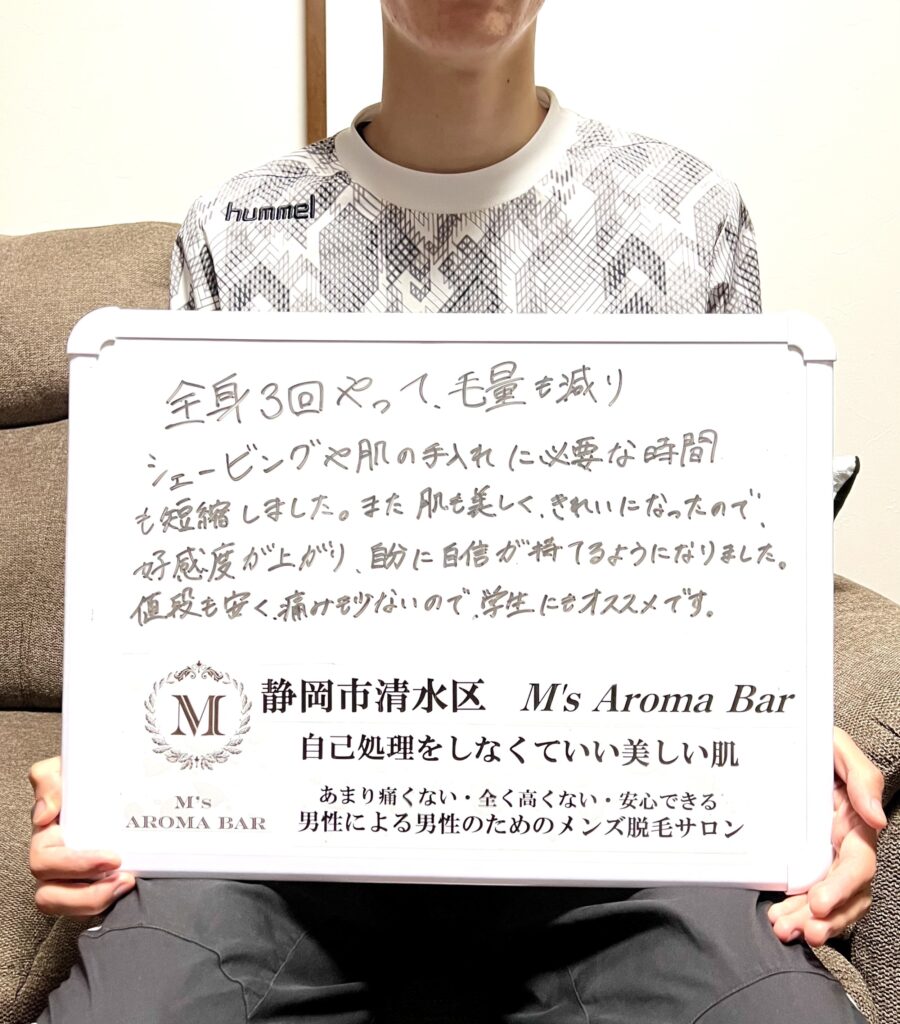 hummel
全身3回やって、毛量も減り
シェービングや肌の手入れに必要な時間
も短縮しました。また肌も美しく、きれいになったので、
好感度が上がり、自分に自信が持てるようになりました。
値段も安く、痛みも少ないので、学生にもオススメです。
M
静岡市清水区 M's Aroma Bar
自己処理をしなくていい美しい肌
M's
AROMA BAR
あまり痛くない・全く高くない・安心できる
男性による男性のためのメンズ脱毛サロン